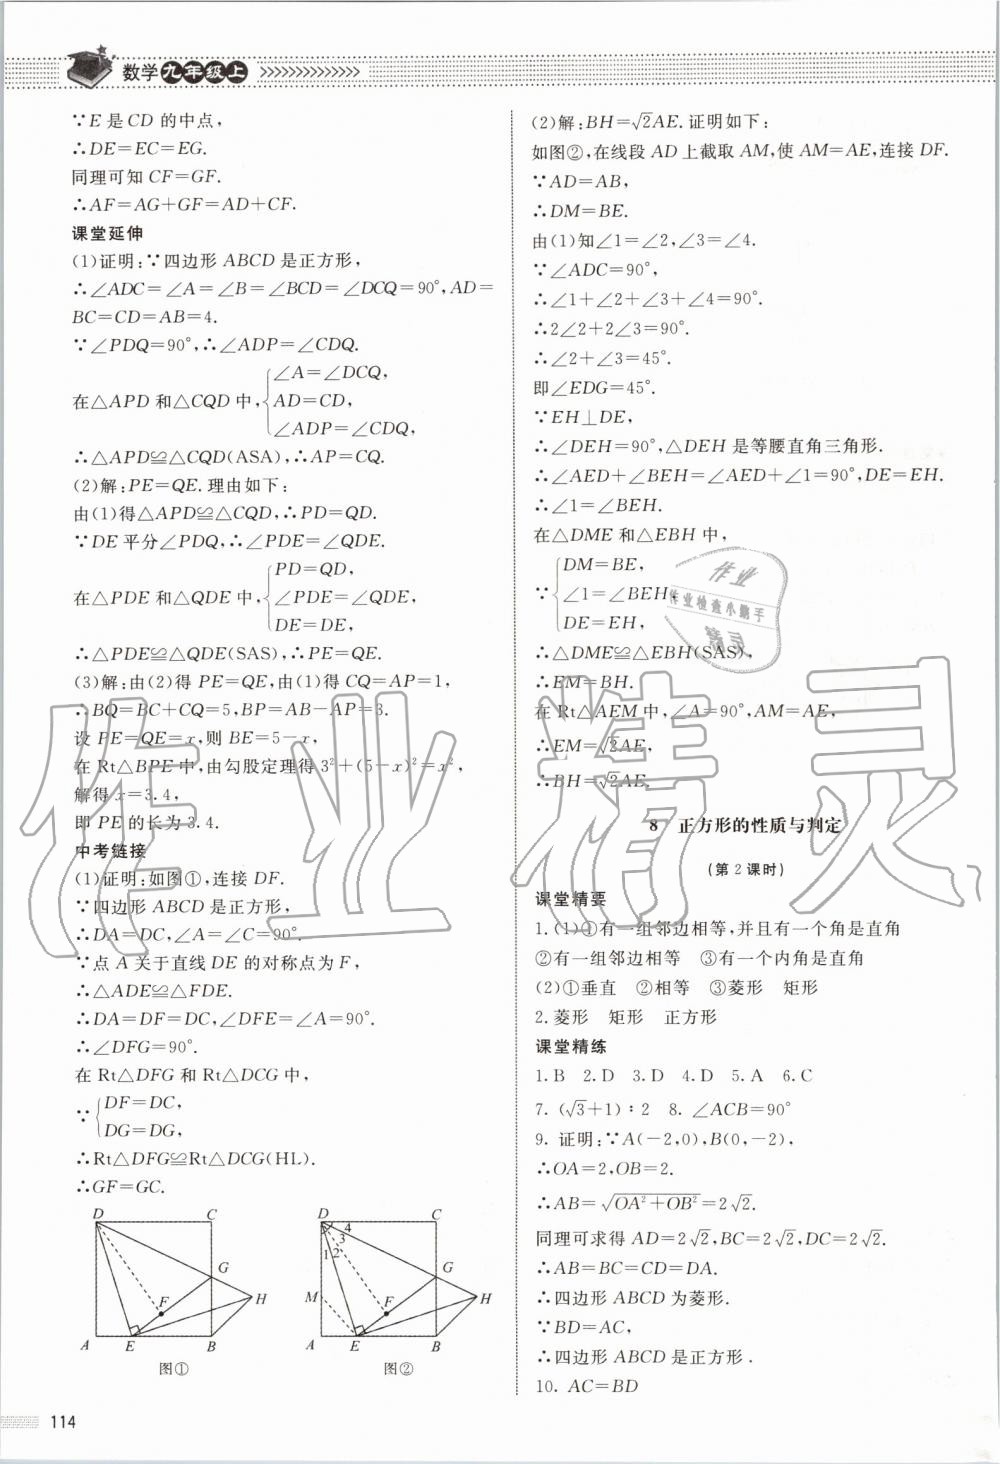 数学九年级上
∵E是CD的中点,
∴DE=EC=EG.
同理可知CF=GF.
∴AF=AG+GF=AD+CF.
课堂延伸
(1)证明:∵四边形ABCD是正方形,
∴∠ADC=∠A=∠B=∠BCD=∠DCQ=90°,AD=
BC=CD=AB=4.
∵∠PDQ=90°,∴∠ADP=∠CDQ.
∠A=∠DCQ,
在△APD和△CQD中,{AD=CD,
∠ADP=∠CDQ,
∴△APD≌△CQD(ASA),∴AP=CQ.
(2)解:PE=QE.理由如下:
由(1)得△APD≌△CQD,∴PD=QD.
∵DE平分∠PDQ,∴∠PDE=∠QDE.
PD=QD,
在△PDE和△QDE中,{∠PDE=∠QDE,
DE=DE,
∴△PDE≌△QDE(SAS),∴PE=QE.
(3)解:由(2)得PE=QE,由(1)得CQ=AP=1,
∴BQ=BC+CQ=5,BP=AB-AP=3.
设PE=QE=x,则BE=5-x,
在Rt△BPE中,由勾股定理得3²+(5-x)²=x²,
解得x=3.4,
即PE的长为3.4.
中考链接
(1)证明:如图①,连接DF.
∵四边形ABCD是正方形,
∴DA=DC,∠A=∠C=90°.
∵点A关于直线DE的对称点为F,
∴△ADE≌△FDE.
∴DA=DF=DC,∠DFE=∠A=90°.
∴∠DFG=90°.
在Rt△DFG和Rt△DCG中,
∵{DF=DC,
DG=DG,
∴Rt△DFG≌Rt△DCG(HL).
∴GF=GC.
D C G H F A E B
图①
D C 4 3 2 1 G M F H A E B
图②
114
(2)解:BH=√2AE.证明如下:
如图②,在线段AD上截取AM,使AM=AE,连接DF.
∵AD=AB,
∴DM=BE.
由(1)知∠1=∠2,∠3=∠4.
∵∠ADC=90°,
∴∠1+∠2+∠3+∠4=90°.
∴2∠2+2∠3=90°.
∴∠2+∠3=45°.
即∠EDG=45°.
∵EH⊥DE,
∴∠DEH=90°,△DEH是等腰直角三角形.
∴∠AED+∠BEH=∠AED+∠1=90°,DE=EH.
∴∠1=∠BEH.
在△DME和△EBH中,
DM=BE,
∵{∠1=∠BEH,
DE=EH,
∴△DME≌△EBH(SAS),
∴EM=BH.
在Rt△AEM中,∠A=90°,AM=AE,
∴EM=√2AE,
∴BH=√2AE.
8 正方形的性质与判定
(第2课时)
课堂精要
1.(1)①有一组邻边相等,并且有一个角是直角
②有一组邻边相等 ③有一个内角是直角
(2)①垂直 ②相等 ③菱形 矩形
2.菱形 矩形 正方形
课堂精练
1.B 2.D 3.D 4.D 5.A 6.C
7.(√3+1)∶2 8.∠ACB=90°
9. 证明:∵A(-2,0),B(0,-2),
∴OA=2,OB=2.
∴AB=√OA²+OB²=2√2.
同理可求得AD=2√2,BC=2√2,DC=2√2.
∴AB=BC=CD=DA.
∴四边形ABCD为菱形.
∵BD=AC,
∴四边形ABCD是正方形.
10. AC=BD
作业
作业检查小能手
精灵
作业精灵